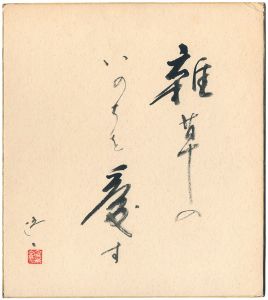 雑草の
いのちを
愛す